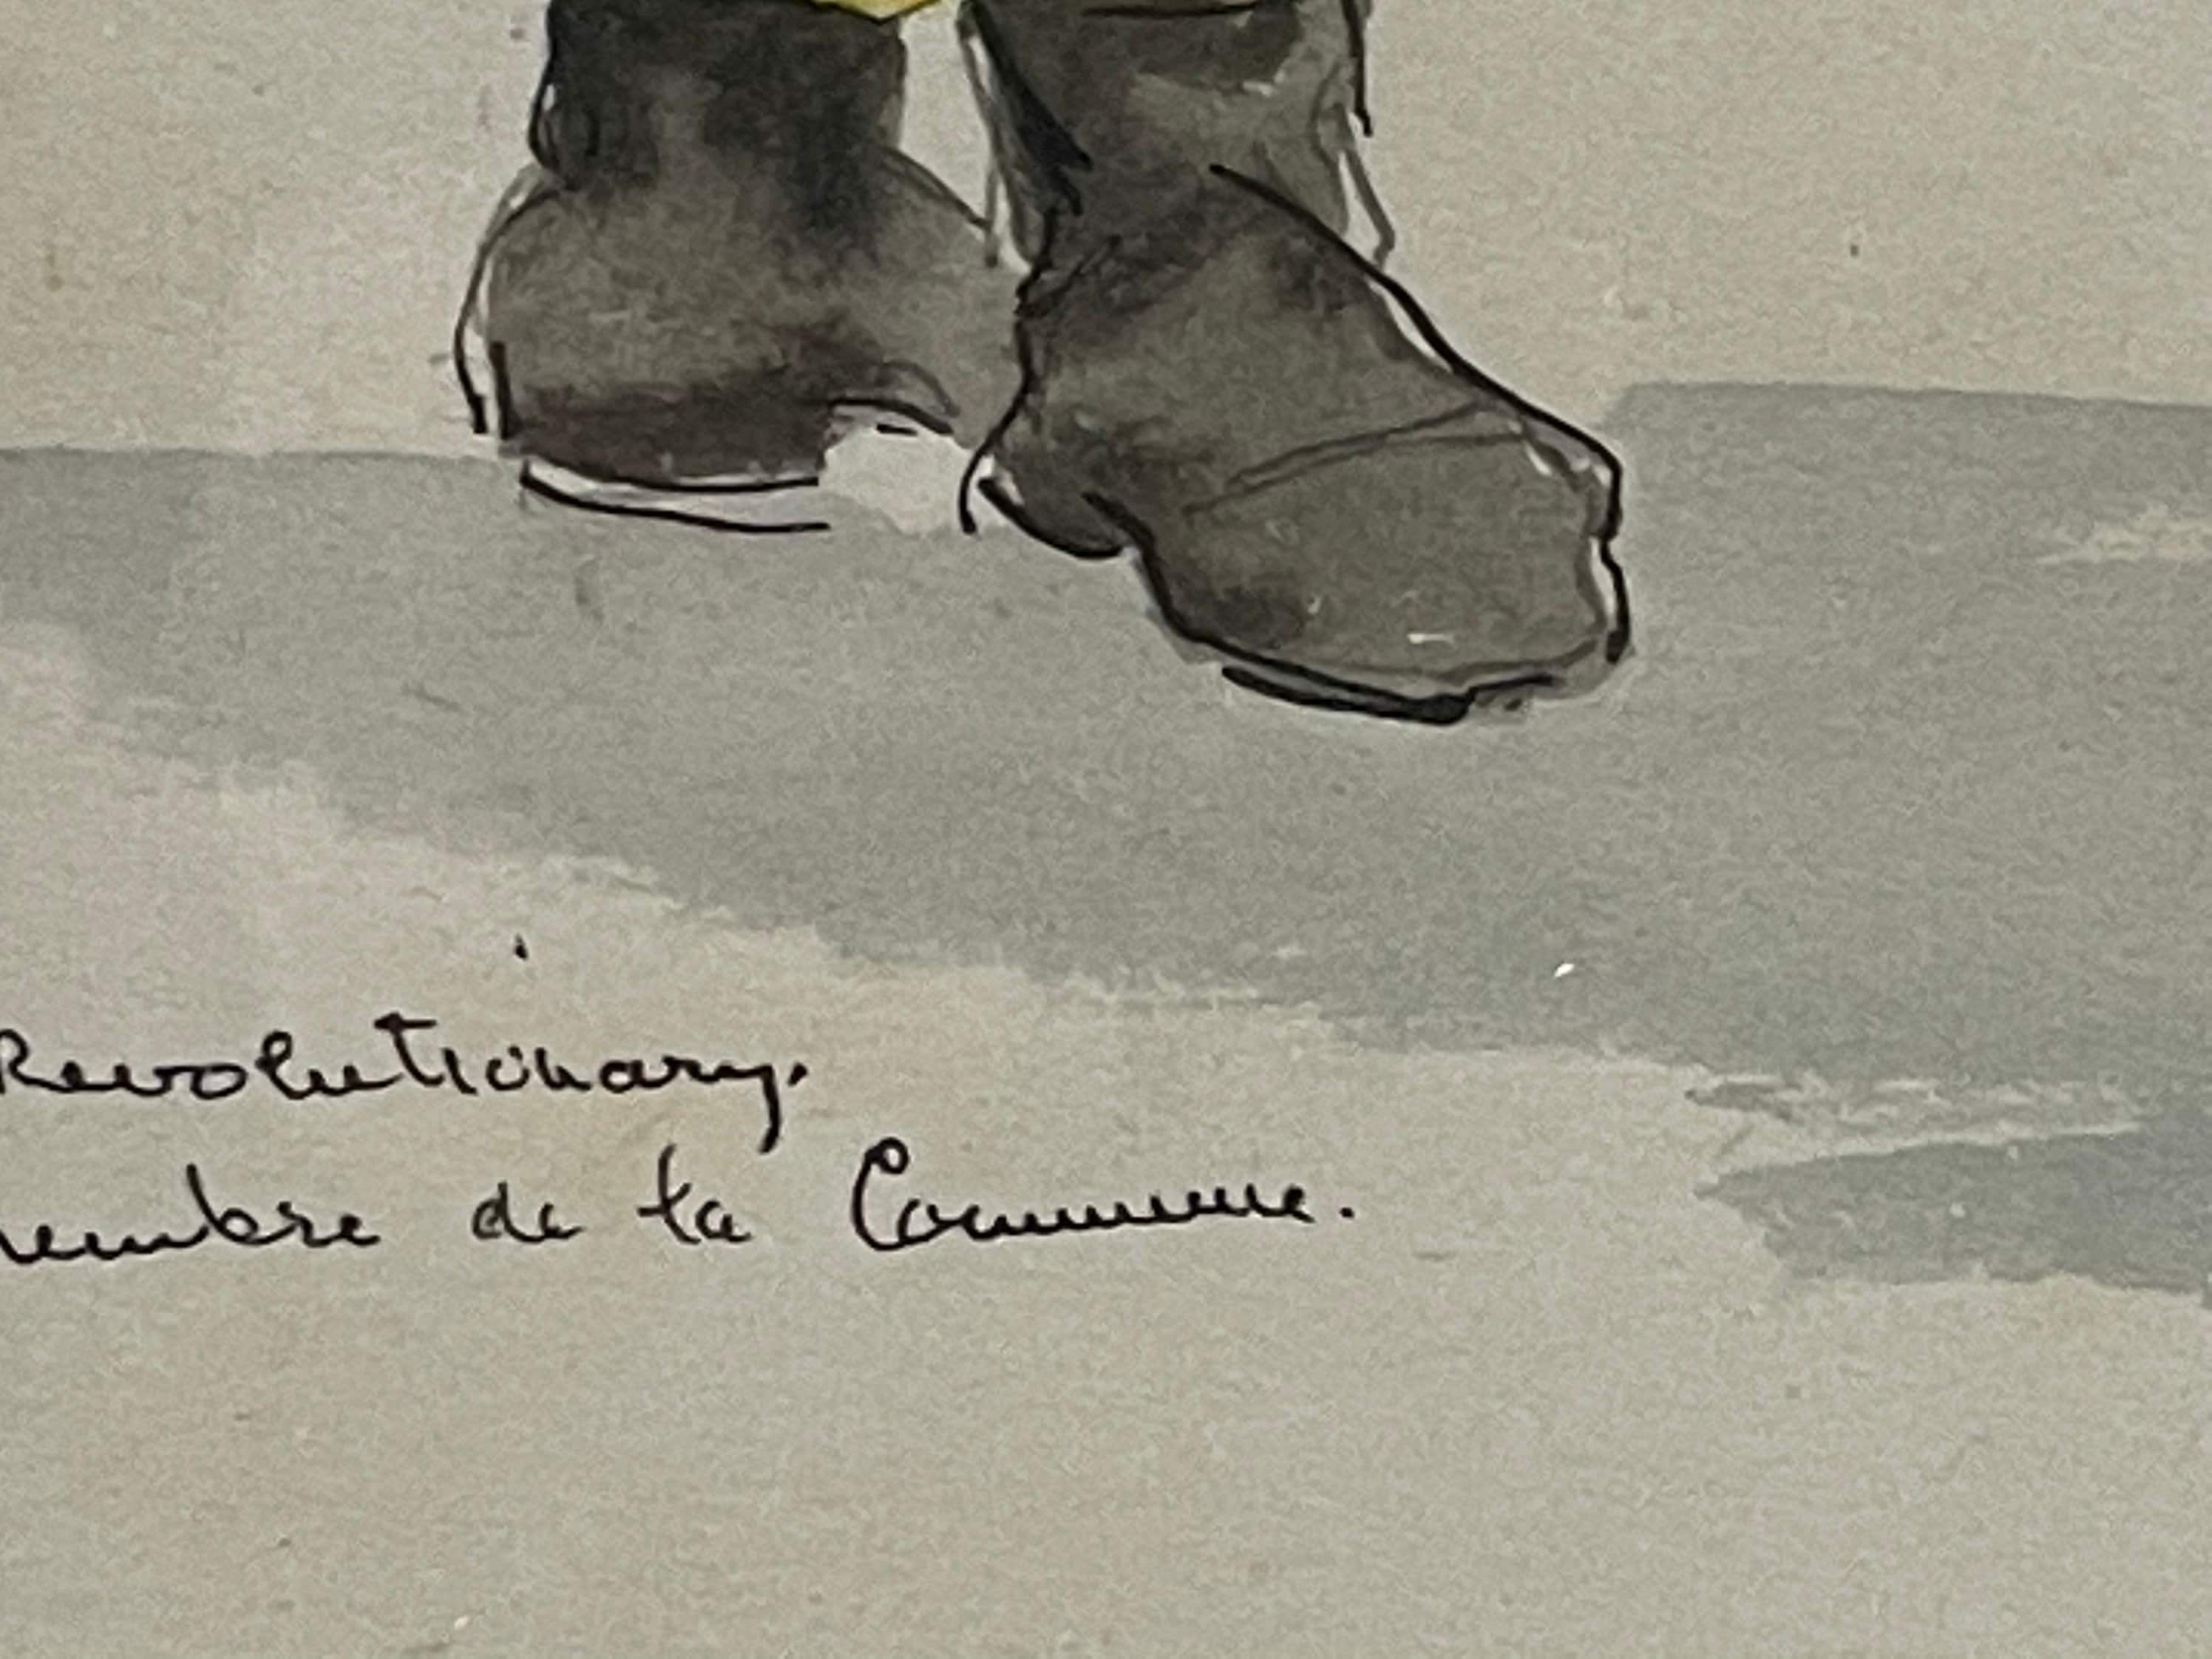 Revolutionary.
membre de la Commune.